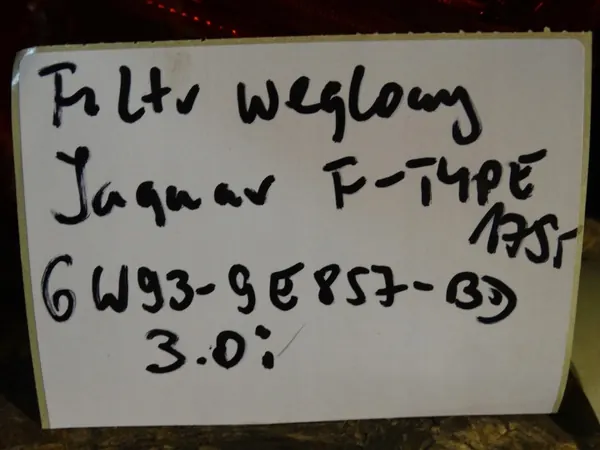 Filtr weglowy
Jaguar F-TYPE
175r
GW93-9E857-BD
3.0i